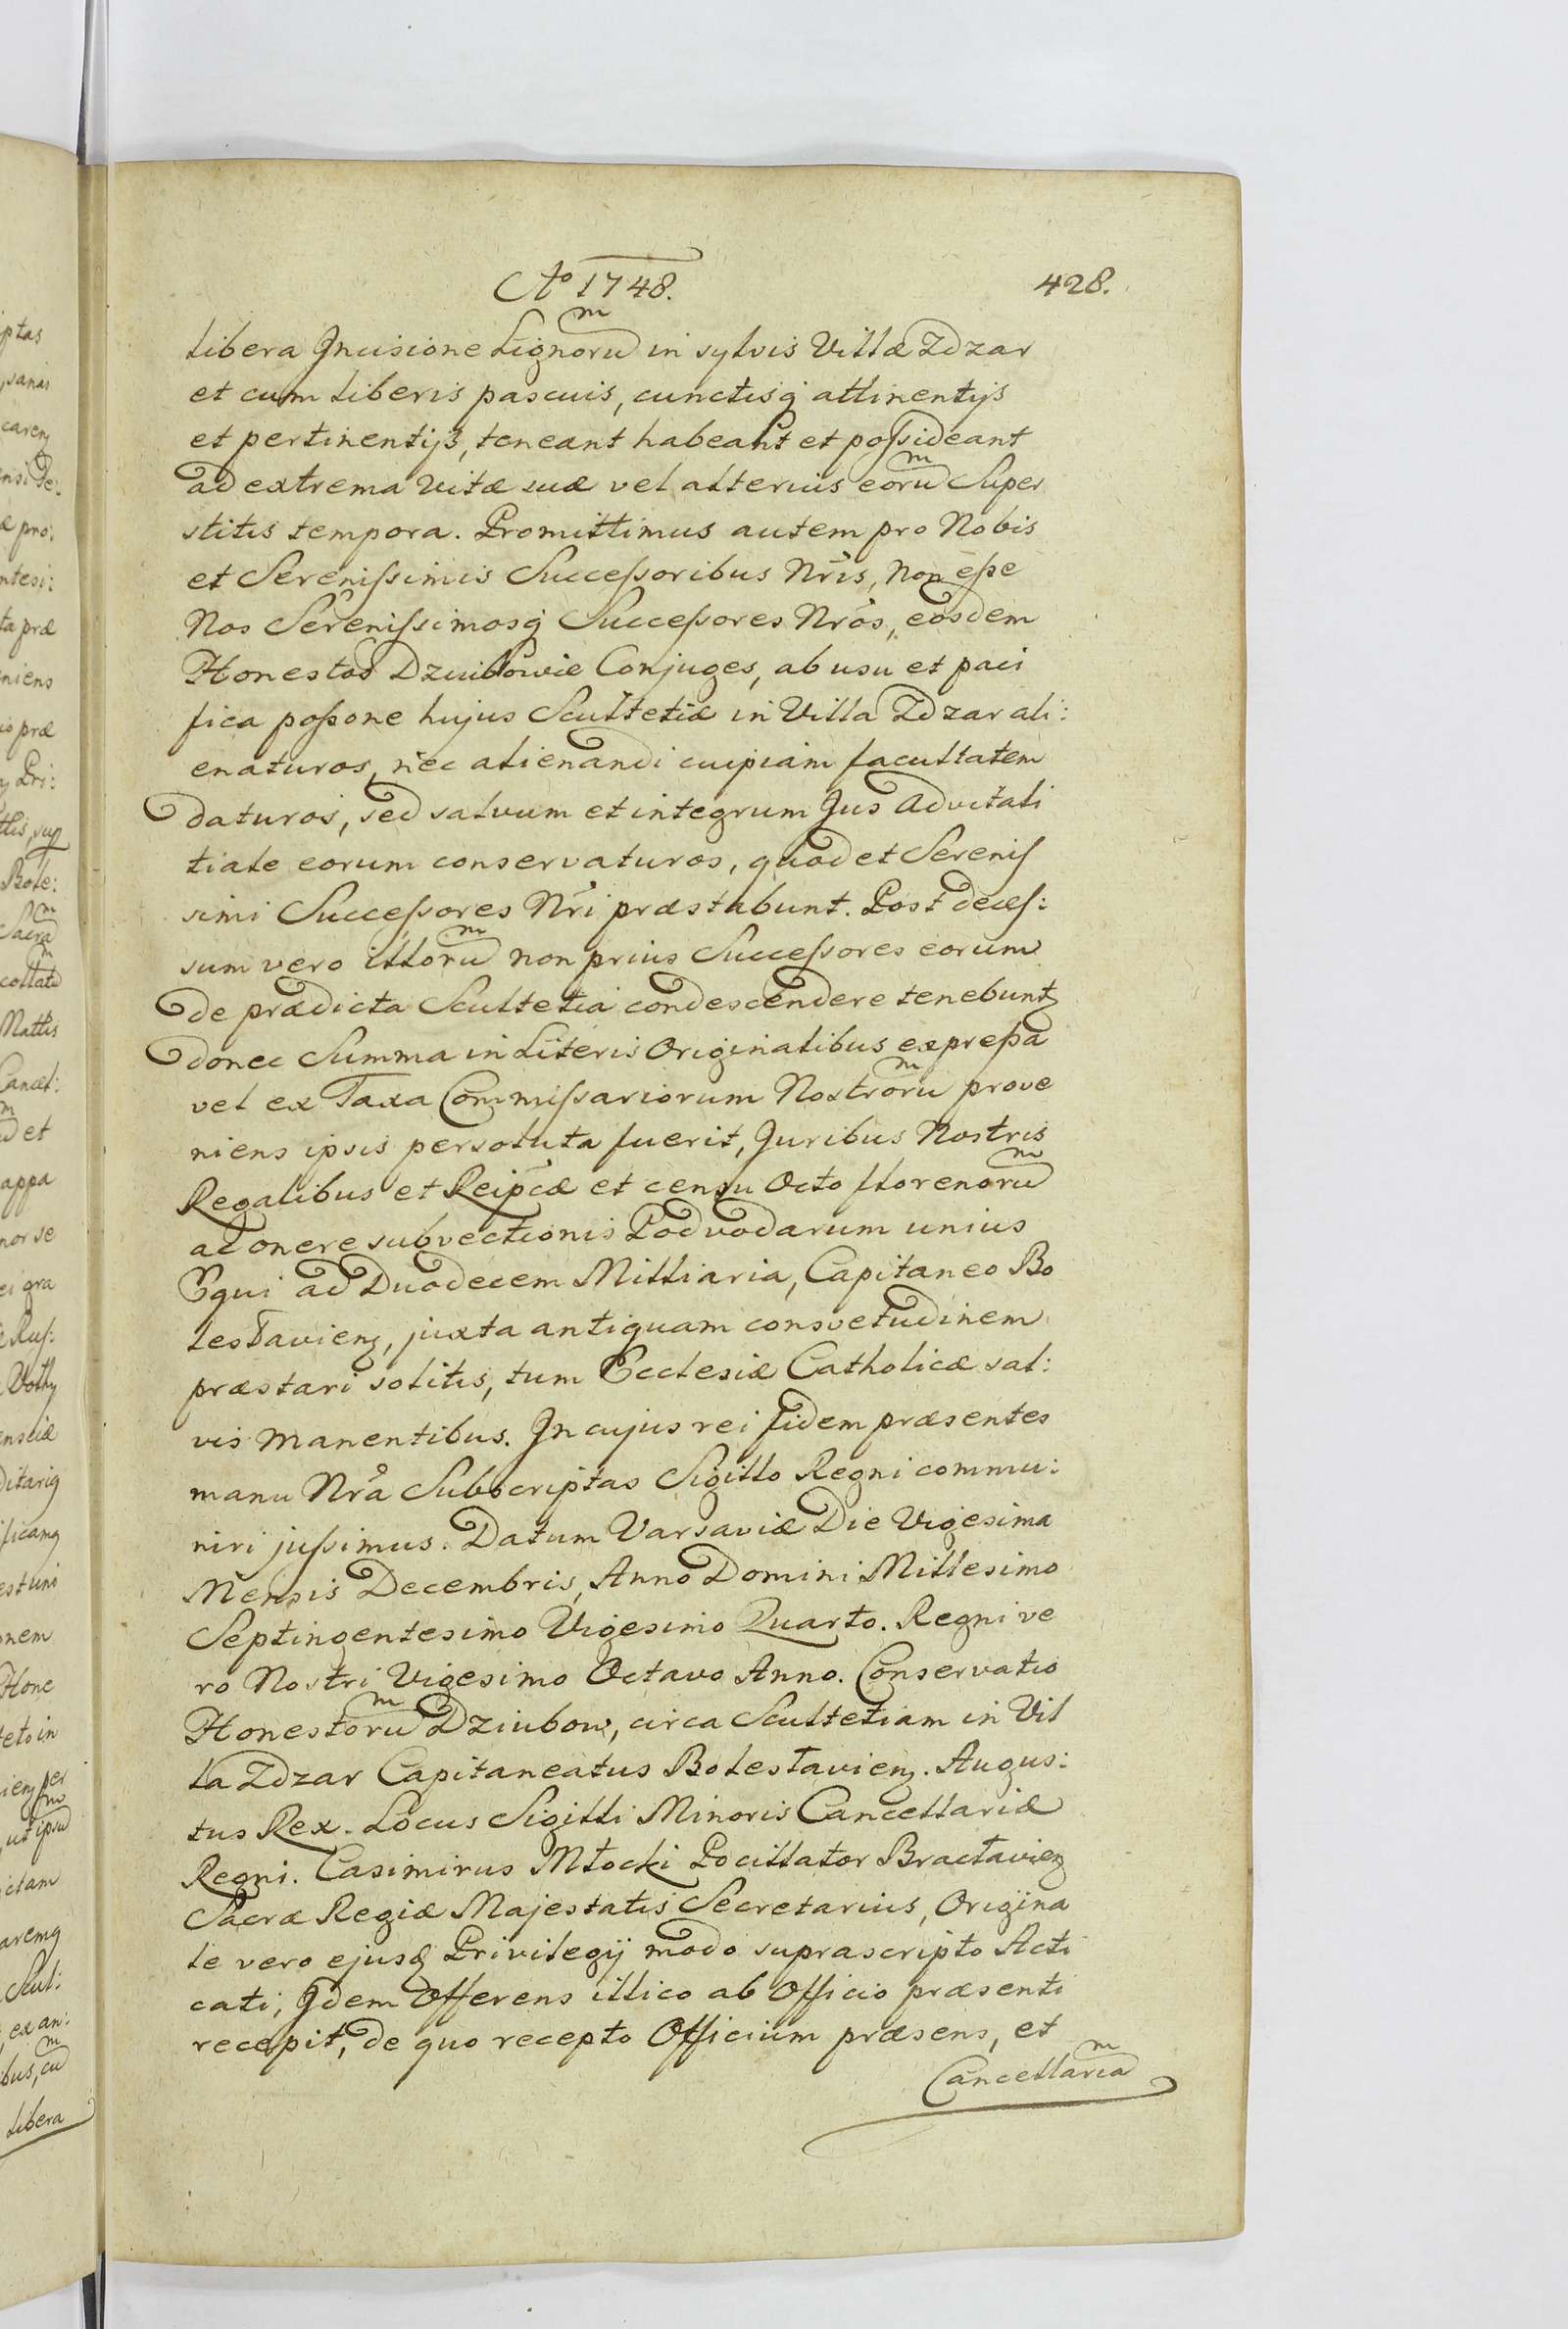 Aº 1748. 428.
libera Incisione Lignorũ in sylvis Villæ Zdzar
et cum liberis pascuis, cunctisq attinentÿs
et pertinentÿs, teneant habeant et poſsideant
ad extrema vitæ suæ vel alterius eorũ Super
stitis tempora. Promittimus autem pro Nobis
et Sereniſsimis Succeſsoribus Nr̃is, non eſse
Nos Sereniſsimosq Succeſsores Nr̃os, eosdem
Honestos Dziubowie Conjuges, ab usu et paci
fica poſsone hujus Scultetiæ in Villa Zdzar ali:
enaturos, nec alienandi cuipiam facultatem
daturos, sed salvum et integrum Jus Advitali
tiale eorum conservaturos, quod et Sereniſ
simi Succeſsores Nr̃i præstabunt. Post deceſ:
sum vero illorũ non prius Succeſsores eorum
de prædicta Scultetia condescendere tenebuntȝ
donec Summa in Literis Originalibus expreſsa
vel ex Taxa Commiſsariorum Nostrorũ prove
niens ipsis persoluta fuerit, Juribus Nostris
Regalibus et Reipcæ et censu Octo florenorũ
ac onere subvectionis Podvodarum unius
Equi ad Duodecem Milliaria, Capitaneo Bo
leslavienȝ, juxta antiquam consvetudinem
præstari solitis, tum Ecclesiæ Catholicæ sal:
vis manentibus. In cujus rei fidem præsentes
manu Nr̃a Subscriptas Sigillo Regni commu:
niri juſsimus. Datum Varsaviæ Die Vigesima
Mensis Decembris, Anno Domini Millesimo
Septingentesimo Vigesimo Quarto. Regni ve
ro Nostri Vigesimo Octavo Anno. Conservatio
Honestorũ Dziubow, circa Scultetiam in Vil
la Zdzar Capitaneatus Boleslavienȝ. Augus:
tus Rex. Locus Sigilli Minoris Cancellariæ
Regni. Casimirus Młocki Pocillator Braclavienȝ
Sacræ Regiæ Majestatis Secretarius, Origina
le vero ejusq Privilegÿ modo suprascripto Acti
cati, Idem Offerens illico ab Officio præsenti
recepit, de quo recepto Officium præsens, et
Cancellariã